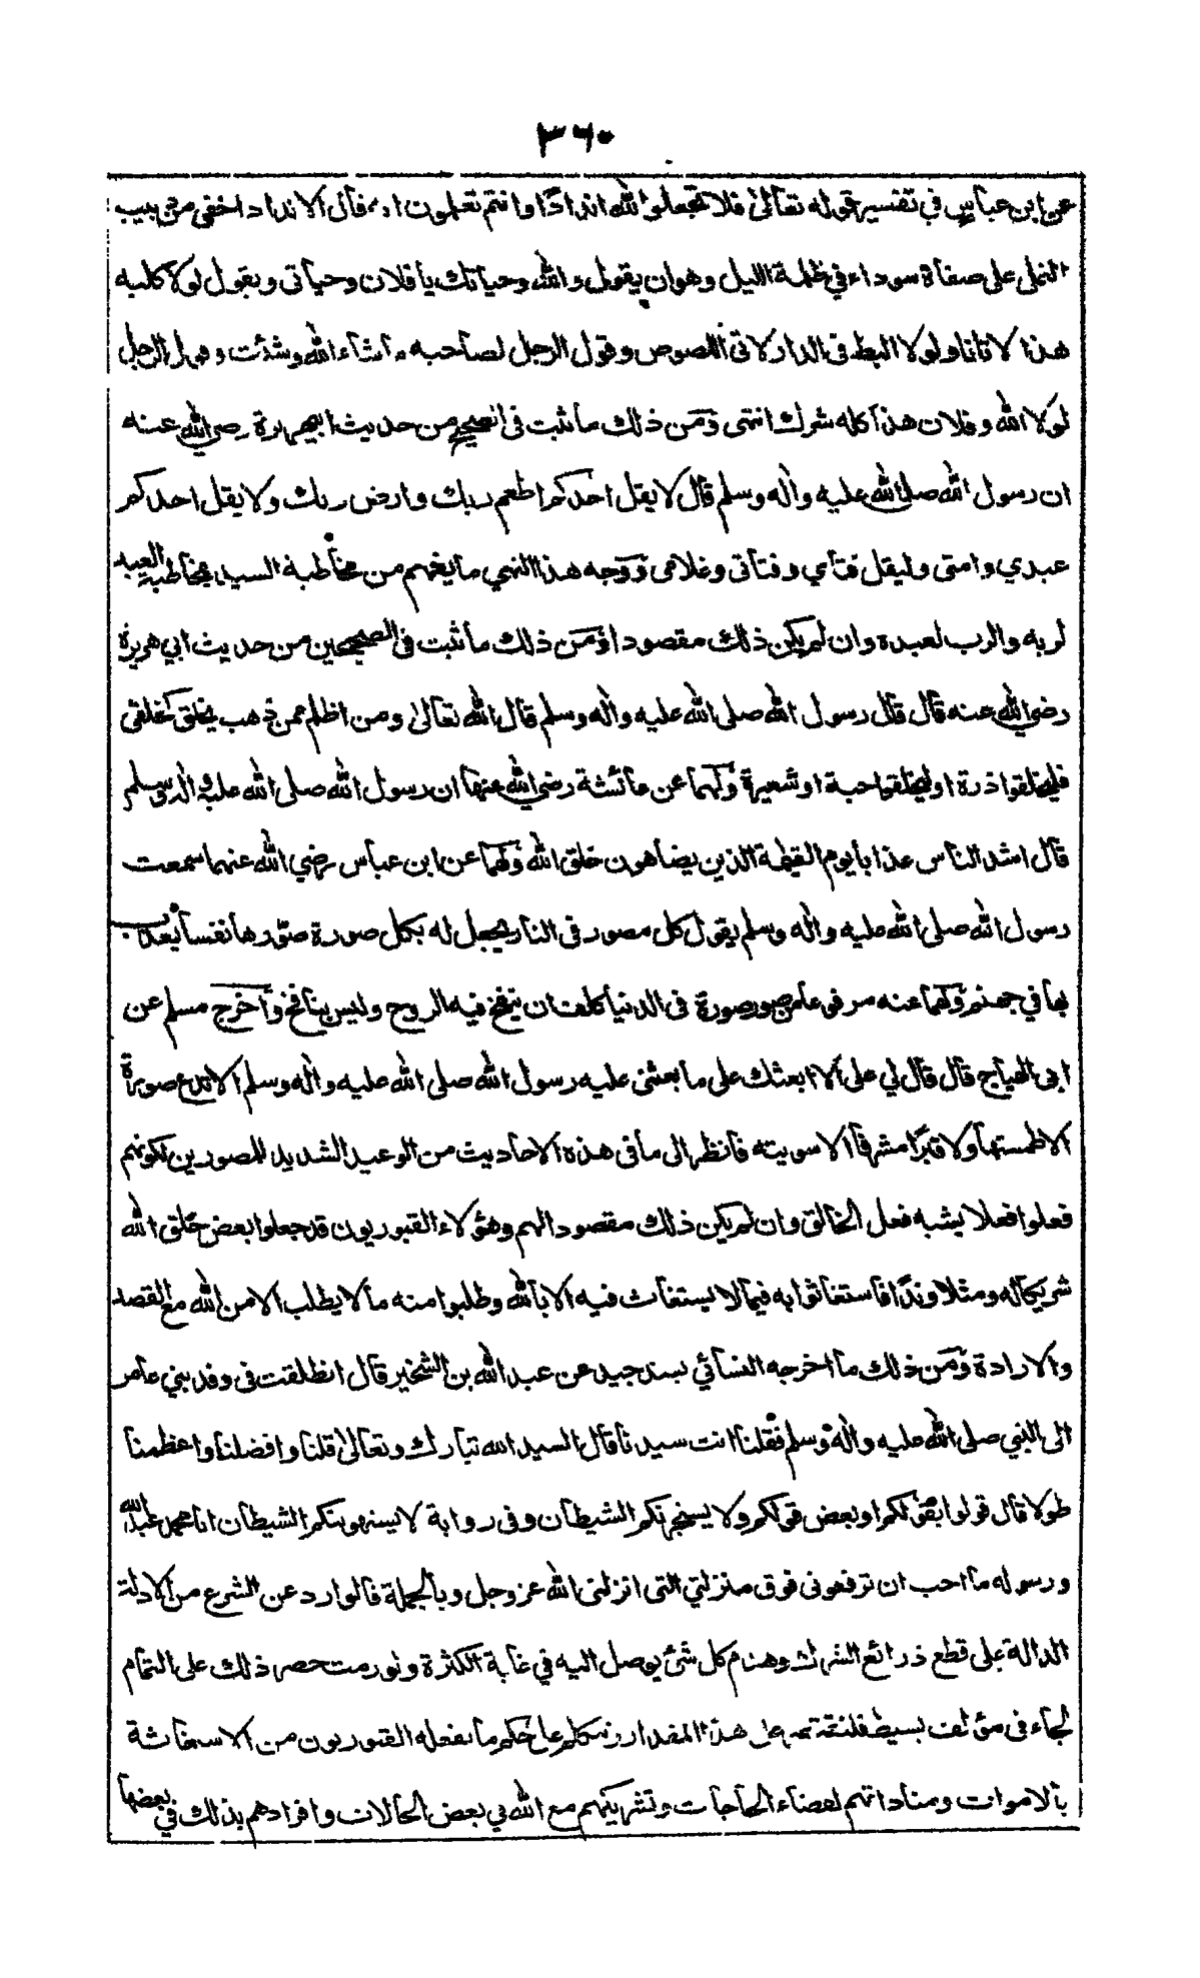 ٣٦٠
عن ابن عباس في تفسير قوله تعالى فلا تجعلوا لله اندادًا وانتم تعلمون انه قال الانداد اخفى من دبيب
النمل على صفاة سوداء في ظلمة الليل وهو ان يقول والله وحياتك يا فلان وحياتي ويقول لولا كلبه
هذا لاتانا ولولا البط في الدار لاتى اللصوص وقول الرجل لصاحبه ما شاء الله وشئت وقول الرجل
لولا الله وفلان هذا كله شرك انتهى ومن ذلك ما ثبت في الصحيح من حديث ابيهريرة رضي الله عنه
ان رسول الله صلى الله عليه واله وسلم قال لا يقل احدكم اطعم ربك وارض ربك ولا يقل احدكم
عبدي وامتى وليقل فتاي وفتاتى وغلامى ووجه هذا النهي ما يفهم من مخاطبة السيد بمخاطبة العبد
لربه والرب لعبده وان لم يكن ذلك مقصودا ومن ذلك ما ثبت في الصحيحين من حديث ابي هريرة
رضي الله عنه قال قال رسول الله صلى الله عليه واله وسلم قال الله تعالى ومن اظلم ممن ذهب يخلق كخلقى
فليخلقوا ذرة او ليخلقوا حبة او شعيرة ولهما عن عائشة رضي الله عنها ان رسول الله صلى الله عليه واله وسلم
قال اشد الناس عذابا يوم القيٰمة الذين يضاهون خلق الله ولهما عن ابن عباس رضي الله عنهما سمعت
رسول الله صلى الله عليه واله وسلم يقول كل مصور في النار يجعل له بكل صورة صوّرها نفسا يعذب
بها في جهنم ولهما عنه مرفوعا من صور صورة في الدنيا كلف ان ينفخ فيه الروح وليس بنافخ واخرج مسلم عن
ابى الهياج قال قال لي على الا ابعثك على ما بعثنى عليه رسول الله صلى الله عليه واله وسلم الا تدع صورة
الا طمستها ولا قبرًا مشرفا الا سويته فانظر الى ما في هذه الاحاديث من الوعيد الشديد للمصورين لكونهم
فعلوا فعلا يشبه فعل الخالق وان لم يكن ذلك مقصودا لهم وهؤلاء القبوريون قد جعلوا بعض خلق الله
شريكا له ومثلا وندًا فاستغاثوا به فيما لا يستغاث فيه الا بالله وطلبوا منه ما لا يطلب الا من الله مع القصد
والارادة ومن ذلك ما اخرجه النسائي بسند جيد عن عبد الله بن الشخير قال انطلقت في وفد بني عامر
الى النبي صلى الله عليه واله وسلم فقلنا انت سيدنا قال السيد الله تبارك وتعالى قلنا وافضلنا واعظمنا
طولا قال قولوا بقولكم او بعض قولكم ولا يستجرنكم الشيطان وفى رواية لا يستهوينكم الشيطان انا محمد عبد الله
ورسوله ما احب ان ترفعونى فوق منزلتي التى انزلنى الله عز وجل وبالجملة فالوارد عن الشرع من الادلة
الدالة على قطع ذرائع الشرك وهدم كل شئ يوصل اليه في غاية الكثرة ولو رمت حصر ذلك على التمام
لجاء فى مؤلف بسيط فلنقتصر على هذا المقدار ونتكلم على حكم ما يفعله القبوريون من الاستغاثة
بالاموات ومناداتهم لقضاء الحاجات وتشريكهم مع الله في بعض الحالات وافرادهم بذلك في بعضها